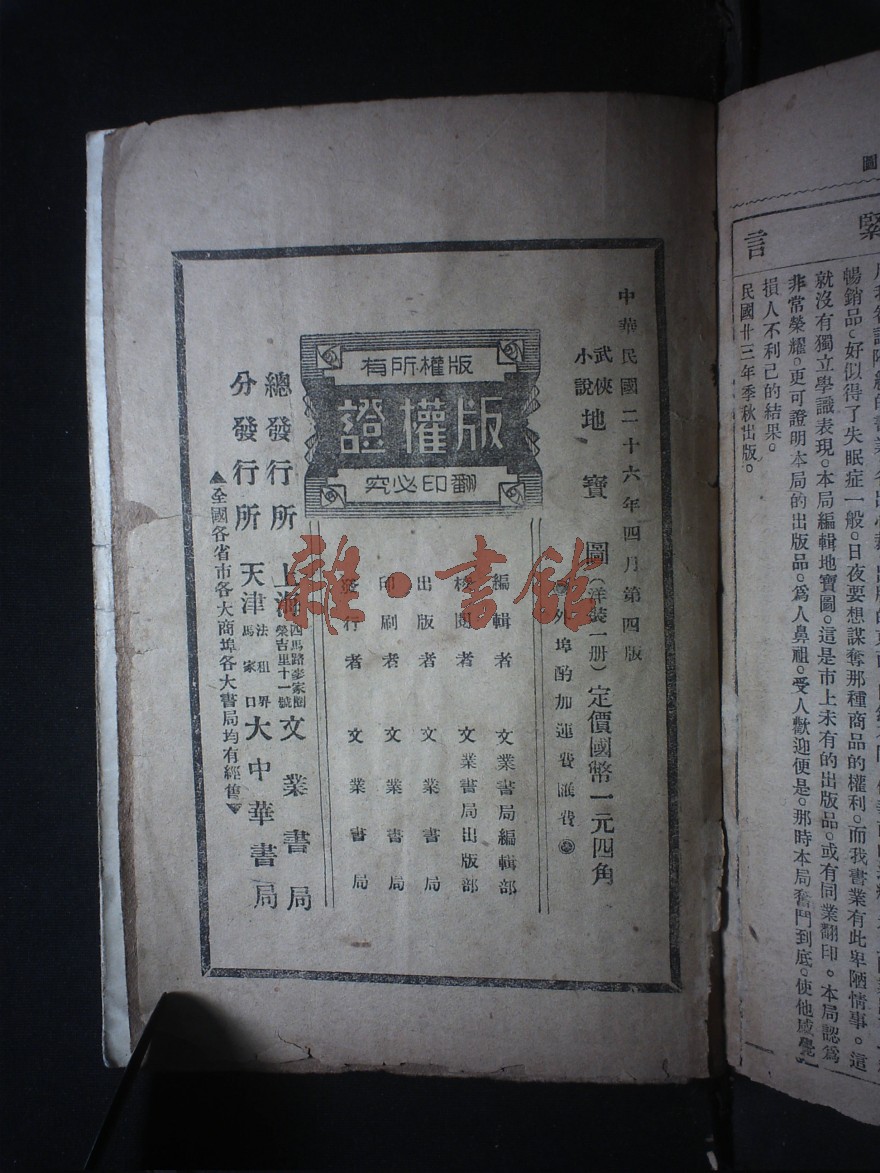 圖
緊
言
暢銷品。好似得了失眠症一般。日夜要想謀奪那種商品的權利。而我書業有此卑陋情事。這
就沒有獨立學識表現。本局編輯地寶圖。這是市上未有的出版品。或有同業翻印。本局認爲
非常榮耀。更可證明本局的出版品。爲人鼻祖。受人歡迎便是。那時本局奮鬥到底。使他感覺
損人不利己的結果。
民國廿三年季秋出版。
中華民國二十六年四月第四版
武俠小說 地寶圖(洋裝一册)定價國幣一元四角
外埠酌加運費匯費
編輯者 文業書局編輯部
校閱者 文業書局出版部
出版者 文業書局
印刷者 文業書局
發行者 文業書局
版權所有
版權證
翻印必究
總發行所 上海四馬路麥家圈榮吉里十一號 文業書局
分發行所 天津法租界馬家口 大中華書局
▲全國各省市各大商埠各大書局均有經售▼
雜·書館